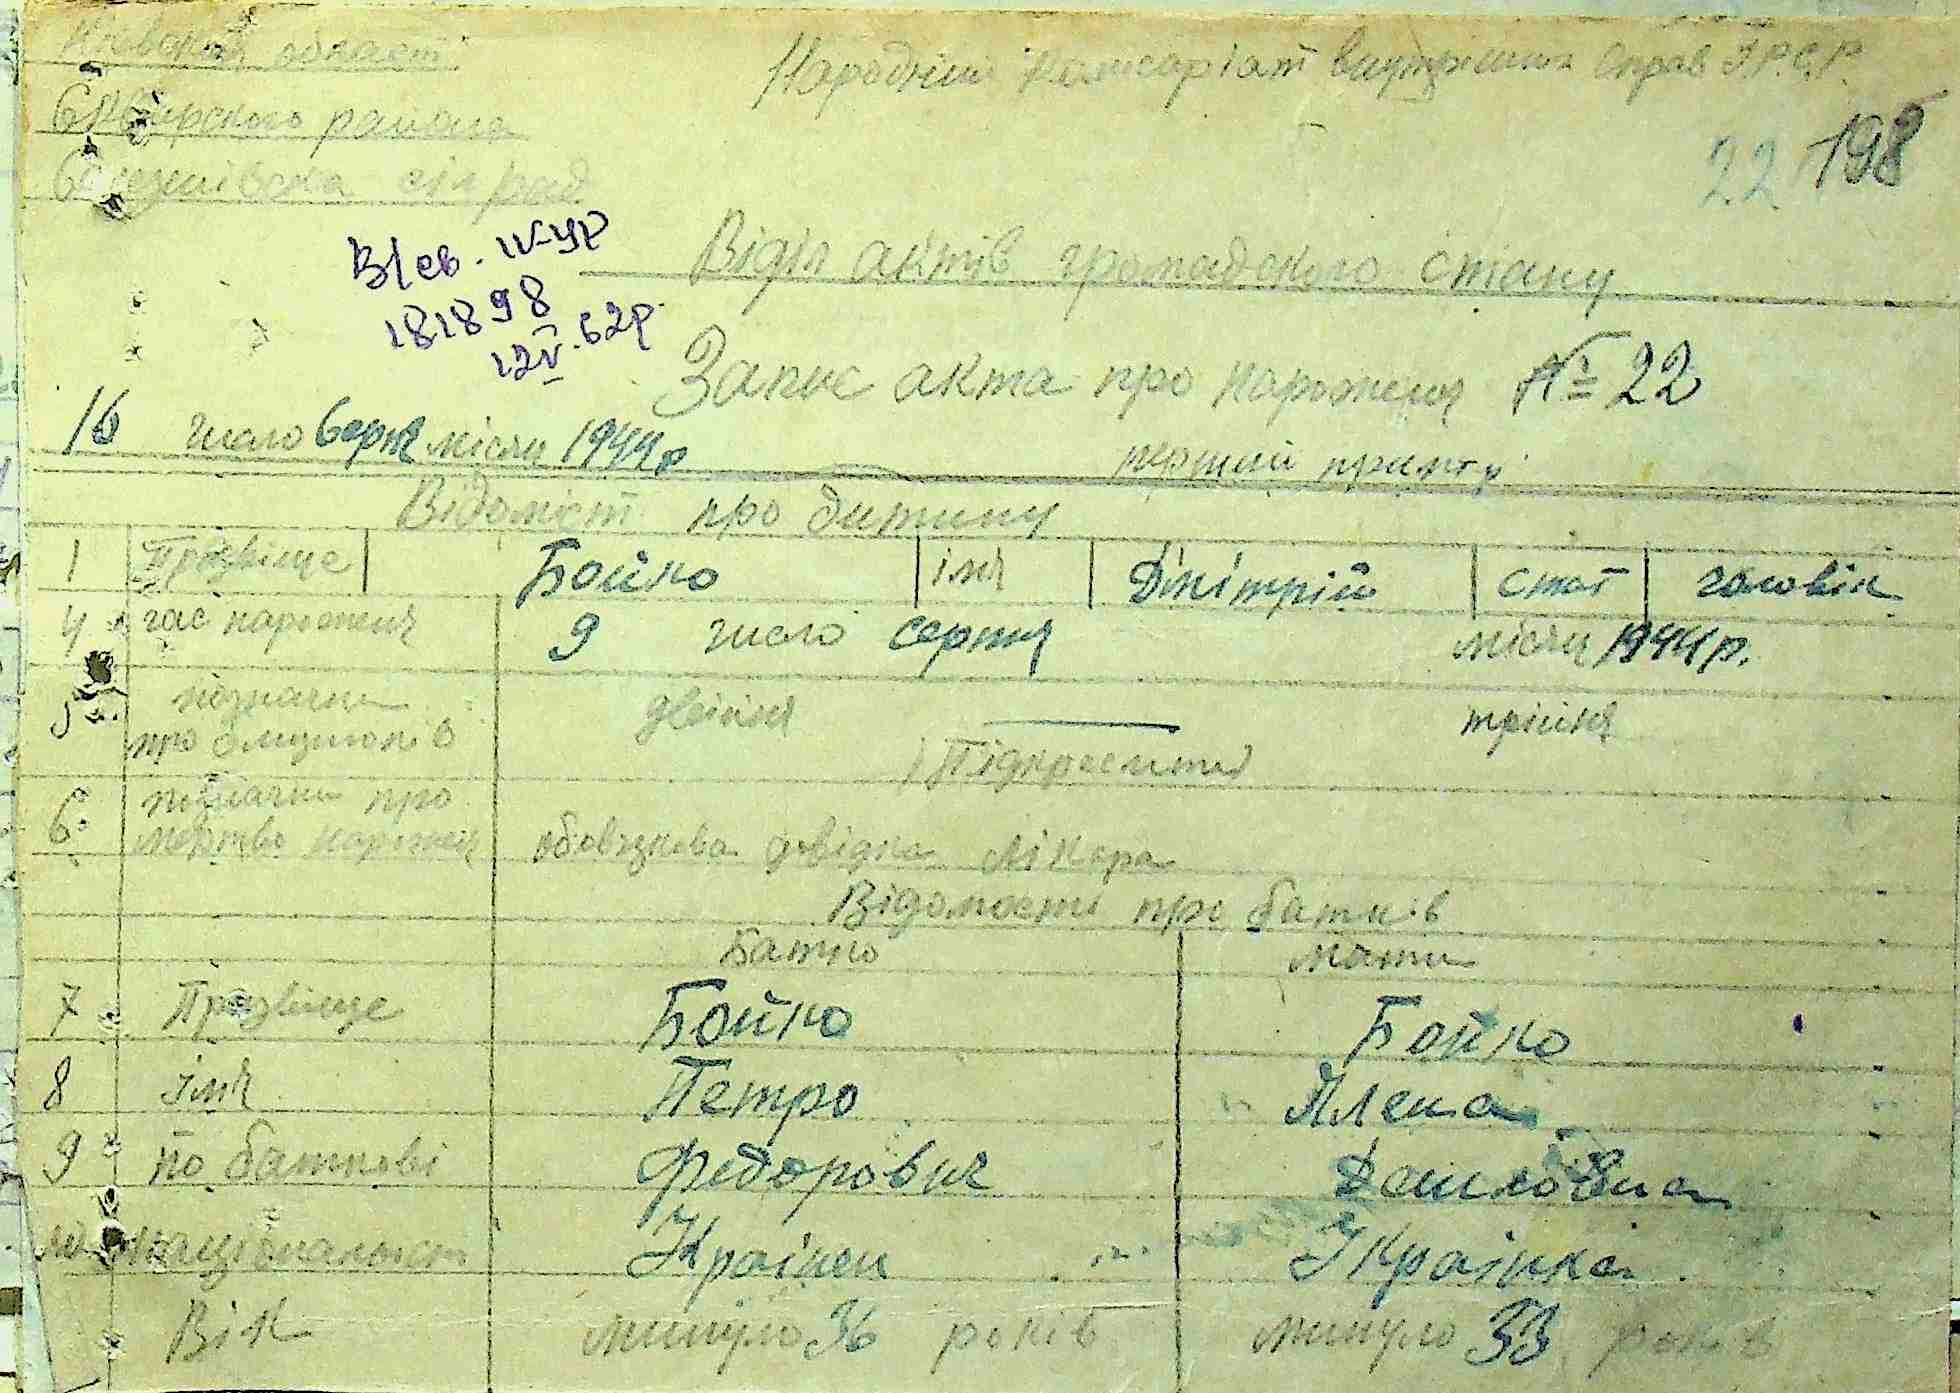 Київска област
Сквирского района
сіл рад
Народній Комисаріат внутрішніх Справ У.Р.С.Р.
22 198
В/св. IV-УР
181898
12 V. 62р.
Відділ актів громадского стану
Запис акта про народженя № 22
16 число серпя місяц 1944 р
первий примір
Відоміст про дитину
1 Прозвіще Бойко імя Дімітрій стат головік
4 час народженя 9 число серпня місяц 1944 р.
5 позначки про близнюків двійня — трійня
Підкреслити
6 позначки про мертво народжен обовязкова довідка лікара
Відомості про батьків
батько мати
7 Прозвіще Бойко Бойко
8 імя Петро Алена
9 по батькові Федорович Даниловна
10 національност Украінец Украінка
Вік минуло 36 років минуло 33 років